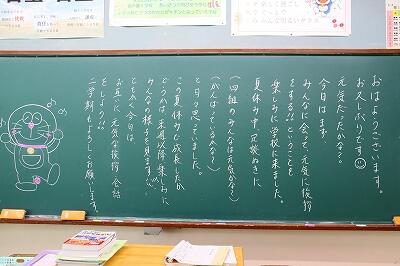 おはようございます。
お久しぶりです☺
元気だったかな?
今日はまず、
みんなに会って、元気に挨拶
をする!!ということを
楽しみに学校に来ました。
夏休み中、四六時中
(四組のみんなは元気かな?)
(がんばっているかな?)
と日々思っていました。
この夏休みで成長したか
どうかは来週以降楽しみに
みんなの様子を見ます!!
ともあれ今日は、
お互いに元気な挨拶、会話
をしよう!!
二学期もよろしくお願いします。